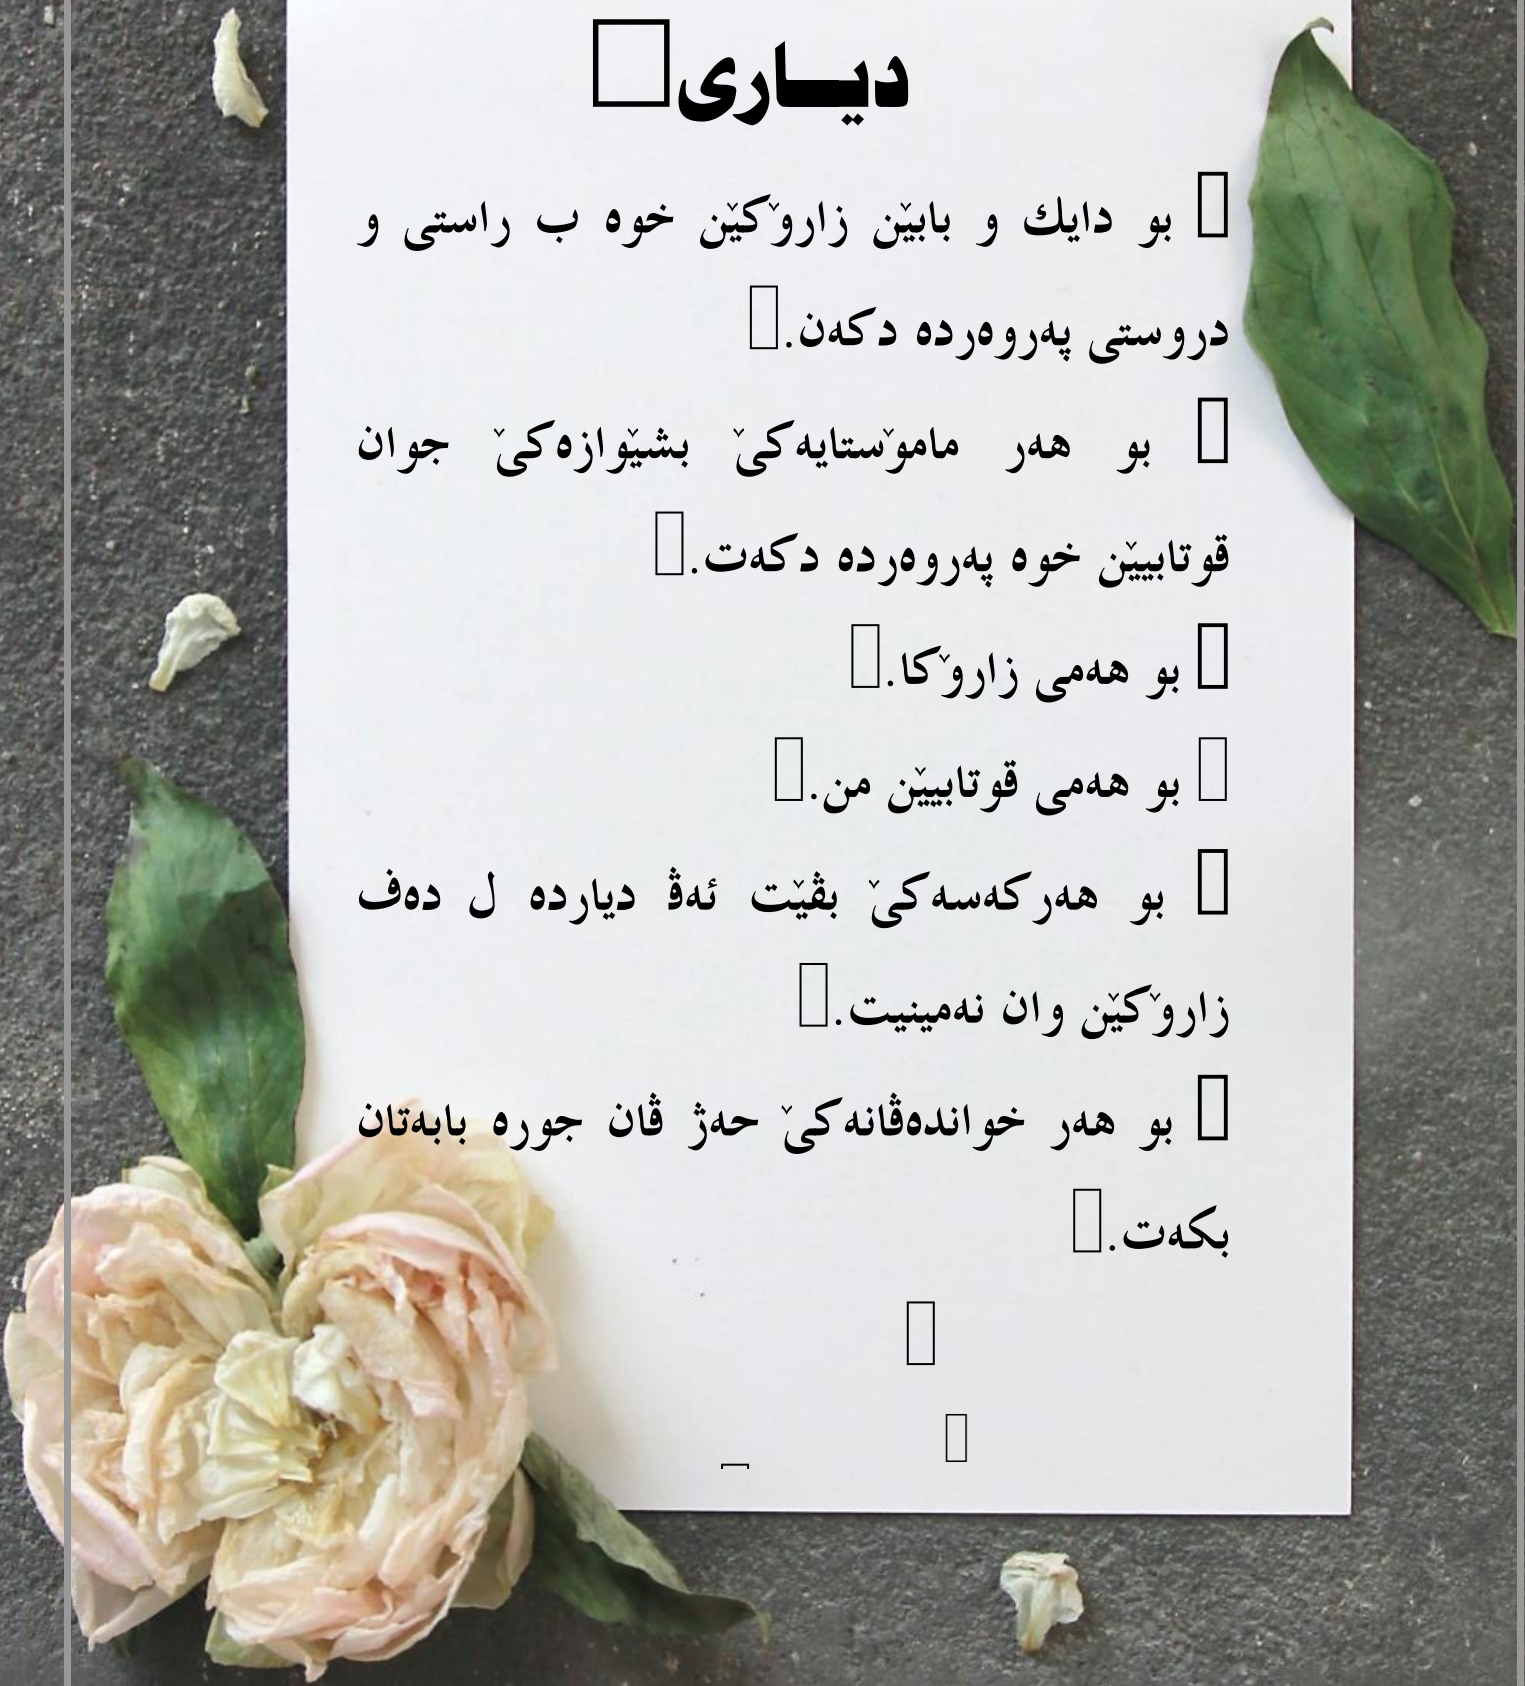 دیاری
بو دایك و بابێن زارۆکێن خوه ب راستی و
دروستی پەروەردە دکەن.
بو هەر مامۆستایەکێ بشێوازەکێ جوان
قوتابیێن خوه پەروەردە دکەت.
بو هەمی زارۆکا.
بو هەمی قوتابیێن من.
بو هەرکەسەکێ بڤێت ئەڤ دیاردە ل دەف
زارۆکێن وان نەمینیت.
بو هەر خواندەڤانەکێ حەژ ڤان جورە بابەتان
بکەت.